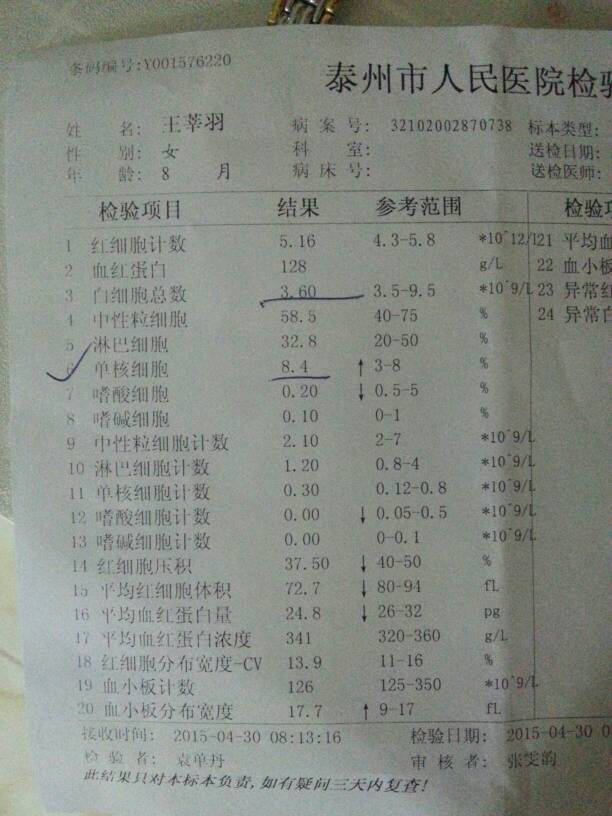 条码编号:Y001576220
泰州市人民医院检验
姓 名: 王莘羽 病 案 号: 32102002870738 标本类型:
性 别: 女 科 室: 送检日期:
年 龄: 8 月 病 床 号: 送检医师:
检验项目 结果 参考范围 检验项
1 红细胞计数 5.16 4.3-5.8 *10^12/L 21 平均血
2 血红蛋白 128 g/L 22 血小板
3 白细胞总数 3.60 3.5-9.5 *10^9/L 23 异常红
4 中性粒细胞 58.5 40-75 % 24 异常白
5 淋巴细胞 32.8 20-50 %
6 单核细胞 8.4 ↑ 3-8 %
7 嗜酸细胞 0.20 ↓ 0.5-5 %
8 嗜碱细胞 0.10 0-1 %
9 中性粒细胞计数 2.10 2-7 *10^9/L
10 淋巴细胞计数 1.20 0.8-4 *10^9/L
11 单核细胞计数 0.30 0.12-0.8 *10^9/L
12 嗜酸细胞计数 0.00 ↓ 0.05-0.5 *10^9/L
13 嗜碱细胞计数 0.00 0-0.1 *10^9/L
14 红细胞压积 37.50 ↓ 40-50 %
15 平均红细胞体积 72.7 ↓ 80-94 fL
16 平均血红蛋白量 24.8 ↓ 26-32 pg
17 平均血红蛋白浓度 341 320-360 g/L
18 红细胞分布宽度-CV 13.9 11-16 %
19 血小板计数 126 125-350 *10^9/L
20 血小板分布宽度 17.7 ↑ 9-17 fL
接收时间: 2015-04-30 08:13:16 检验日期: 2015-04-30 0
检 验 者: 袁单丹 审 核 者: 张雯韵
此结果只对本标本负责,如有疑问三天内复查!